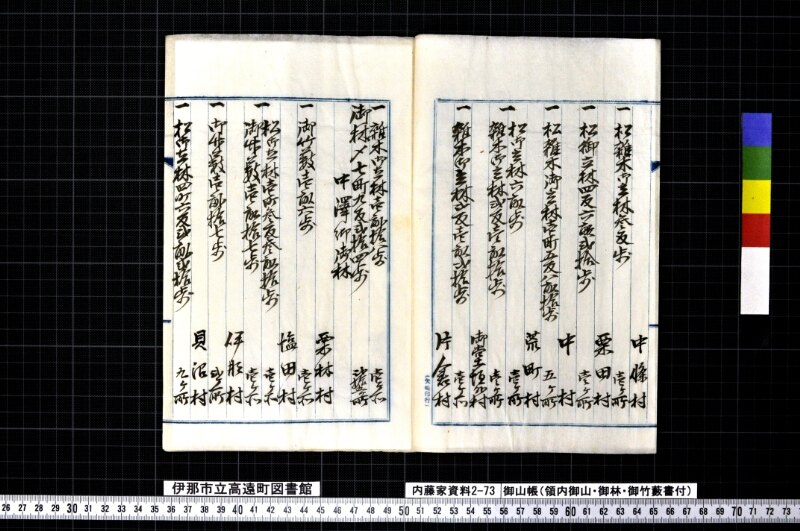 一 松雑木御立林三反歩
中條村
壱ヶ所
一 松御立林四反六畝弐拾歩
栗田村
壱ヶ所
一 松雑木御立林壱町五反八畝拾歩
中村
五ヶ所
一 松御立林六畝歩
荒町村
壱ヶ所
一 雑木御立林弐反壱畝拾歩
御堂垣外村
壱ヶ所
一 雑木御立林弐反壱畝弐拾歩
片倉村
一 雑木御立林壱畝拾歩
壱ヶ所
御林〆七町九反弐拾四歩
中澤郷御林
一 御竹藪壱畝六歩
栗林村
壱ヶ所
一 松御立林壱町三反三畝拾歩
御竹藪壱畝拾七歩
塩田村
壱ヶ所
一 御竹藪壱畝拾七歩
伊那村
弐ヶ所
一 松御立林四町六反弐畝弐拾歩
貝沼村
九ヶ所
伊那市立高遠町図書館
内藤家資料2-73 御山帳(領内御山・御林・御竹藪書付)